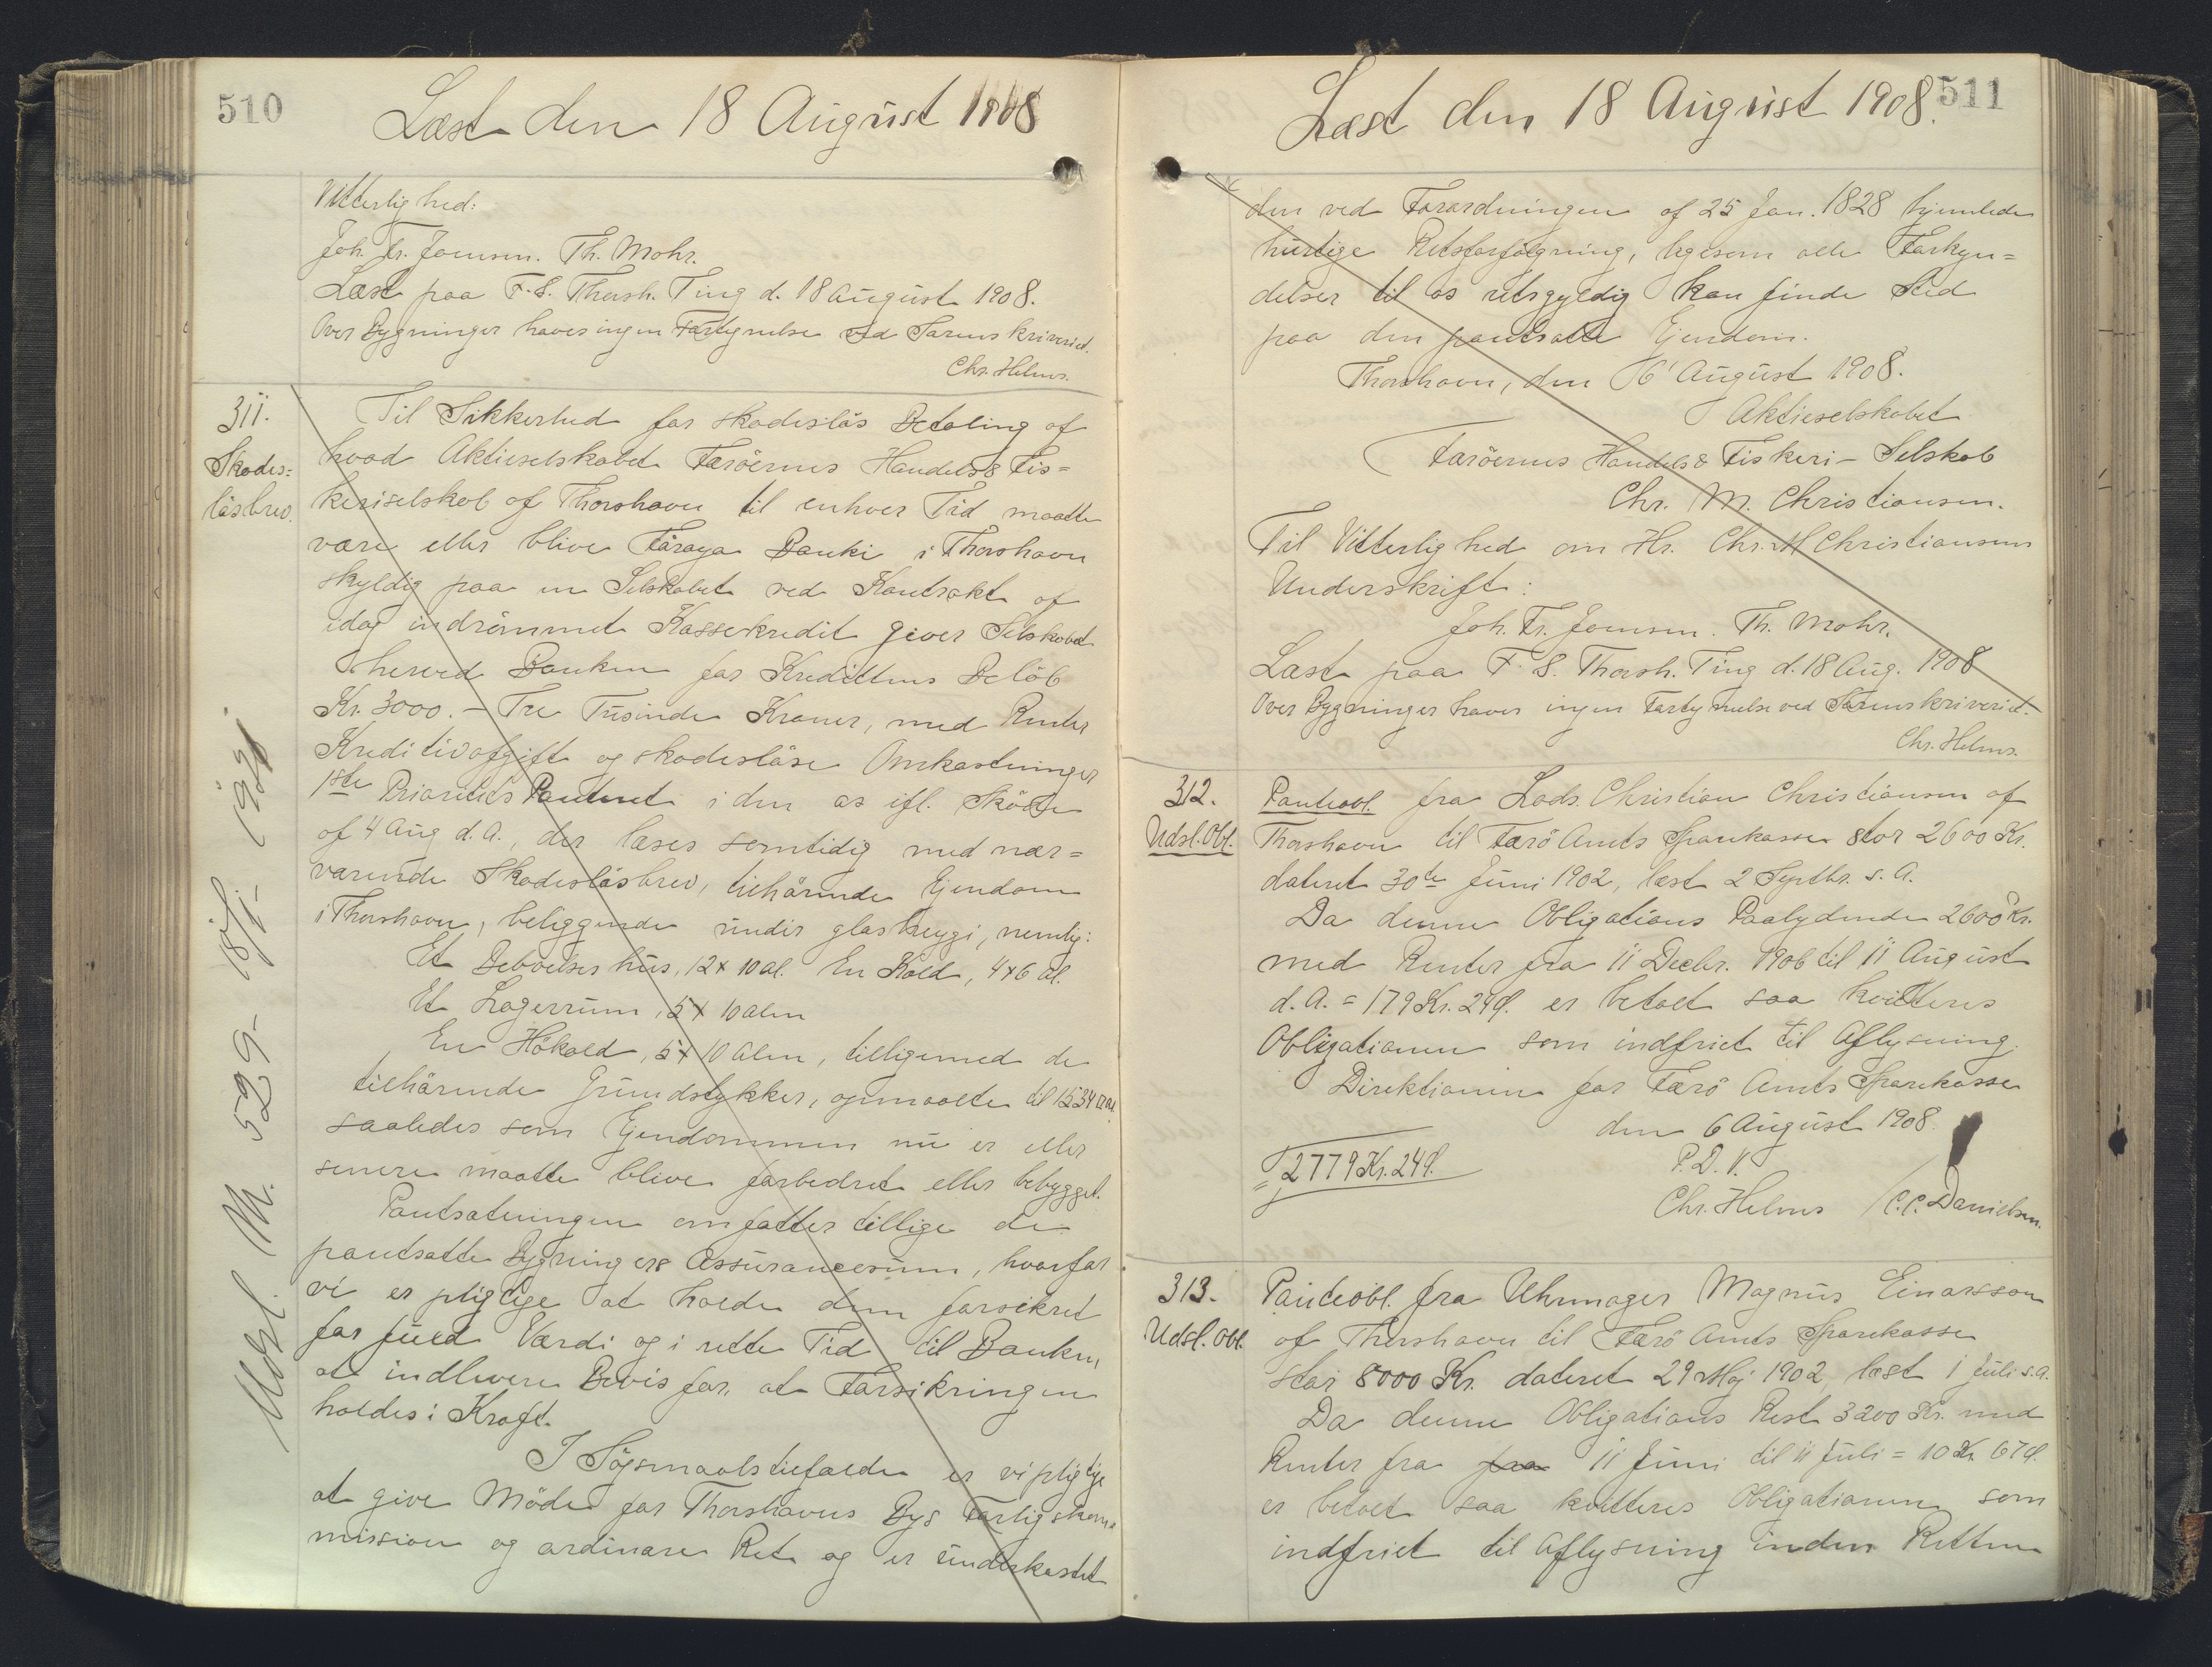 510
Læst den 18 August 1908
Vitterlighed:
Joh. Fr. Joensen. Th. Mohr.
Læst paa F. S. Thorsh. Ting d. 18 August 1908.
Over Bygninger haves ingen Fortegnelse ved Sorenskriveriet.
Chr. Helms.
311.
Skades=
løsbrev.
Til Sikkerhed for skadesløs Betaling af
hvad Aktieselskabet Færøernes Handels & Fis=
keriselskab af Thorshavn til enhver Tid maatte
være eller blive Føroya Banki i Thorshavn
skyldig paa en Selskabet ved Kontrakt af
idag indrømmet Kassekredit giver Selskabet
herved Banken for Kredittens Beløb
Kr. 3000.- Tre Tusinde Kroner, med Renter
Kreditivafgift og skadesløse Omkostninger
1ste Prioritets Panteret i den os ifl. Skøde
af 4 Aug d. A., der læses samtidig med nær=
værende Skadesløsbrev, tilhørende Ejendom
i Thorshavn, beliggende undir glasheyggi, nemlig:
Et Beboelseshus, 12 x 10 al. En Kold, 4x6 al.
Et Lagerrum, 5 x 10 alen
En Høkold, 5 x 10 Alen, tilligemed de
tilhørende Grundstykker, opmaalte til 1534 □ al.
saaledes som Ejendommen nu er eller
senere maatte blive forbedret eller bebygget.
Pantsætningen omfatter tillige de
pantsatte Bygningers Assurancesum, hvorfor
vi er pligtige at holde dem forsikret
for fuld Værdi og i rette Tid til Banken
at indlevere Bevis for, at Forsikringen
holdes i Kraft.
I Søgsmaalstilfælde er vi pligtige
at give Møde for Thorshavns Bys Forligskom=
mission og ordinære Ret og er underkastet
Udsl. M. 529- 18/1- 1921
511
Læst den 18 August 1908.
den ved Forordningen af 25 Jan. 1828 hjemlede
hurtige Retsforfølgning, ligesom alle Forkyn=
delser til os retsgyldig kan finde Sted
paa den pantsatte Ejendom.
Thorshavn, den 6' August 1908.
Aktieselskabet
Færøernes Handels & Fiskeri- Selskab
Chr. M. Christiansen.
Til Vitterlighed om Hr. Chr. M Christiansens
Underskrift:
Joh. Fr. Joensen. Th. Mohr.
Læst paa F. S. Thorsh. Ting d. 18 Aug. 1908
Over Bygninger haves ingen Fortegnelse ved Sorenskriveriet.
Chr. Helms.
312.
Udsl. Obl.
Panteobl. fra Lods Christian Christiansen af
Thorshavn til Færø Amts Sparekasse stor 2600 Kr.
dateret 30te Juni 1902, læst 2 Septbr. s. A.
Da denne Obligations Paalydende 2600 Kr.
med Renter fra 11 Decbr. 1906 til 11 August
d. A. = 179 Kr. 24 Ø. er betalt saa kvitteres
Obligationen som indfriet til Aflysning.
Direktionen for Færø Amts Sparekasse
den 6 August 1908.
= 2779 Kr. 24 Ø.
P. D. V.
Chr. Helms / C. C. Danielsen.
313.
Udsl. Obl.
Panteobl. fra Uhrmager Magnus Einarsson
af Thorshavn til Færø Amts Sparekasse
stor 8000 Kr. dateret 29 Maj 1902, læst 1 Juli s. A.
Da denne Obligations Rest 3200 Kr. med
Renter fra fra 11 Juni til 11 Juli = 10 Kr. 67 Ø.
er betalt saa kvitteres Obligationen som
indfriet til Aflysning inden Retten